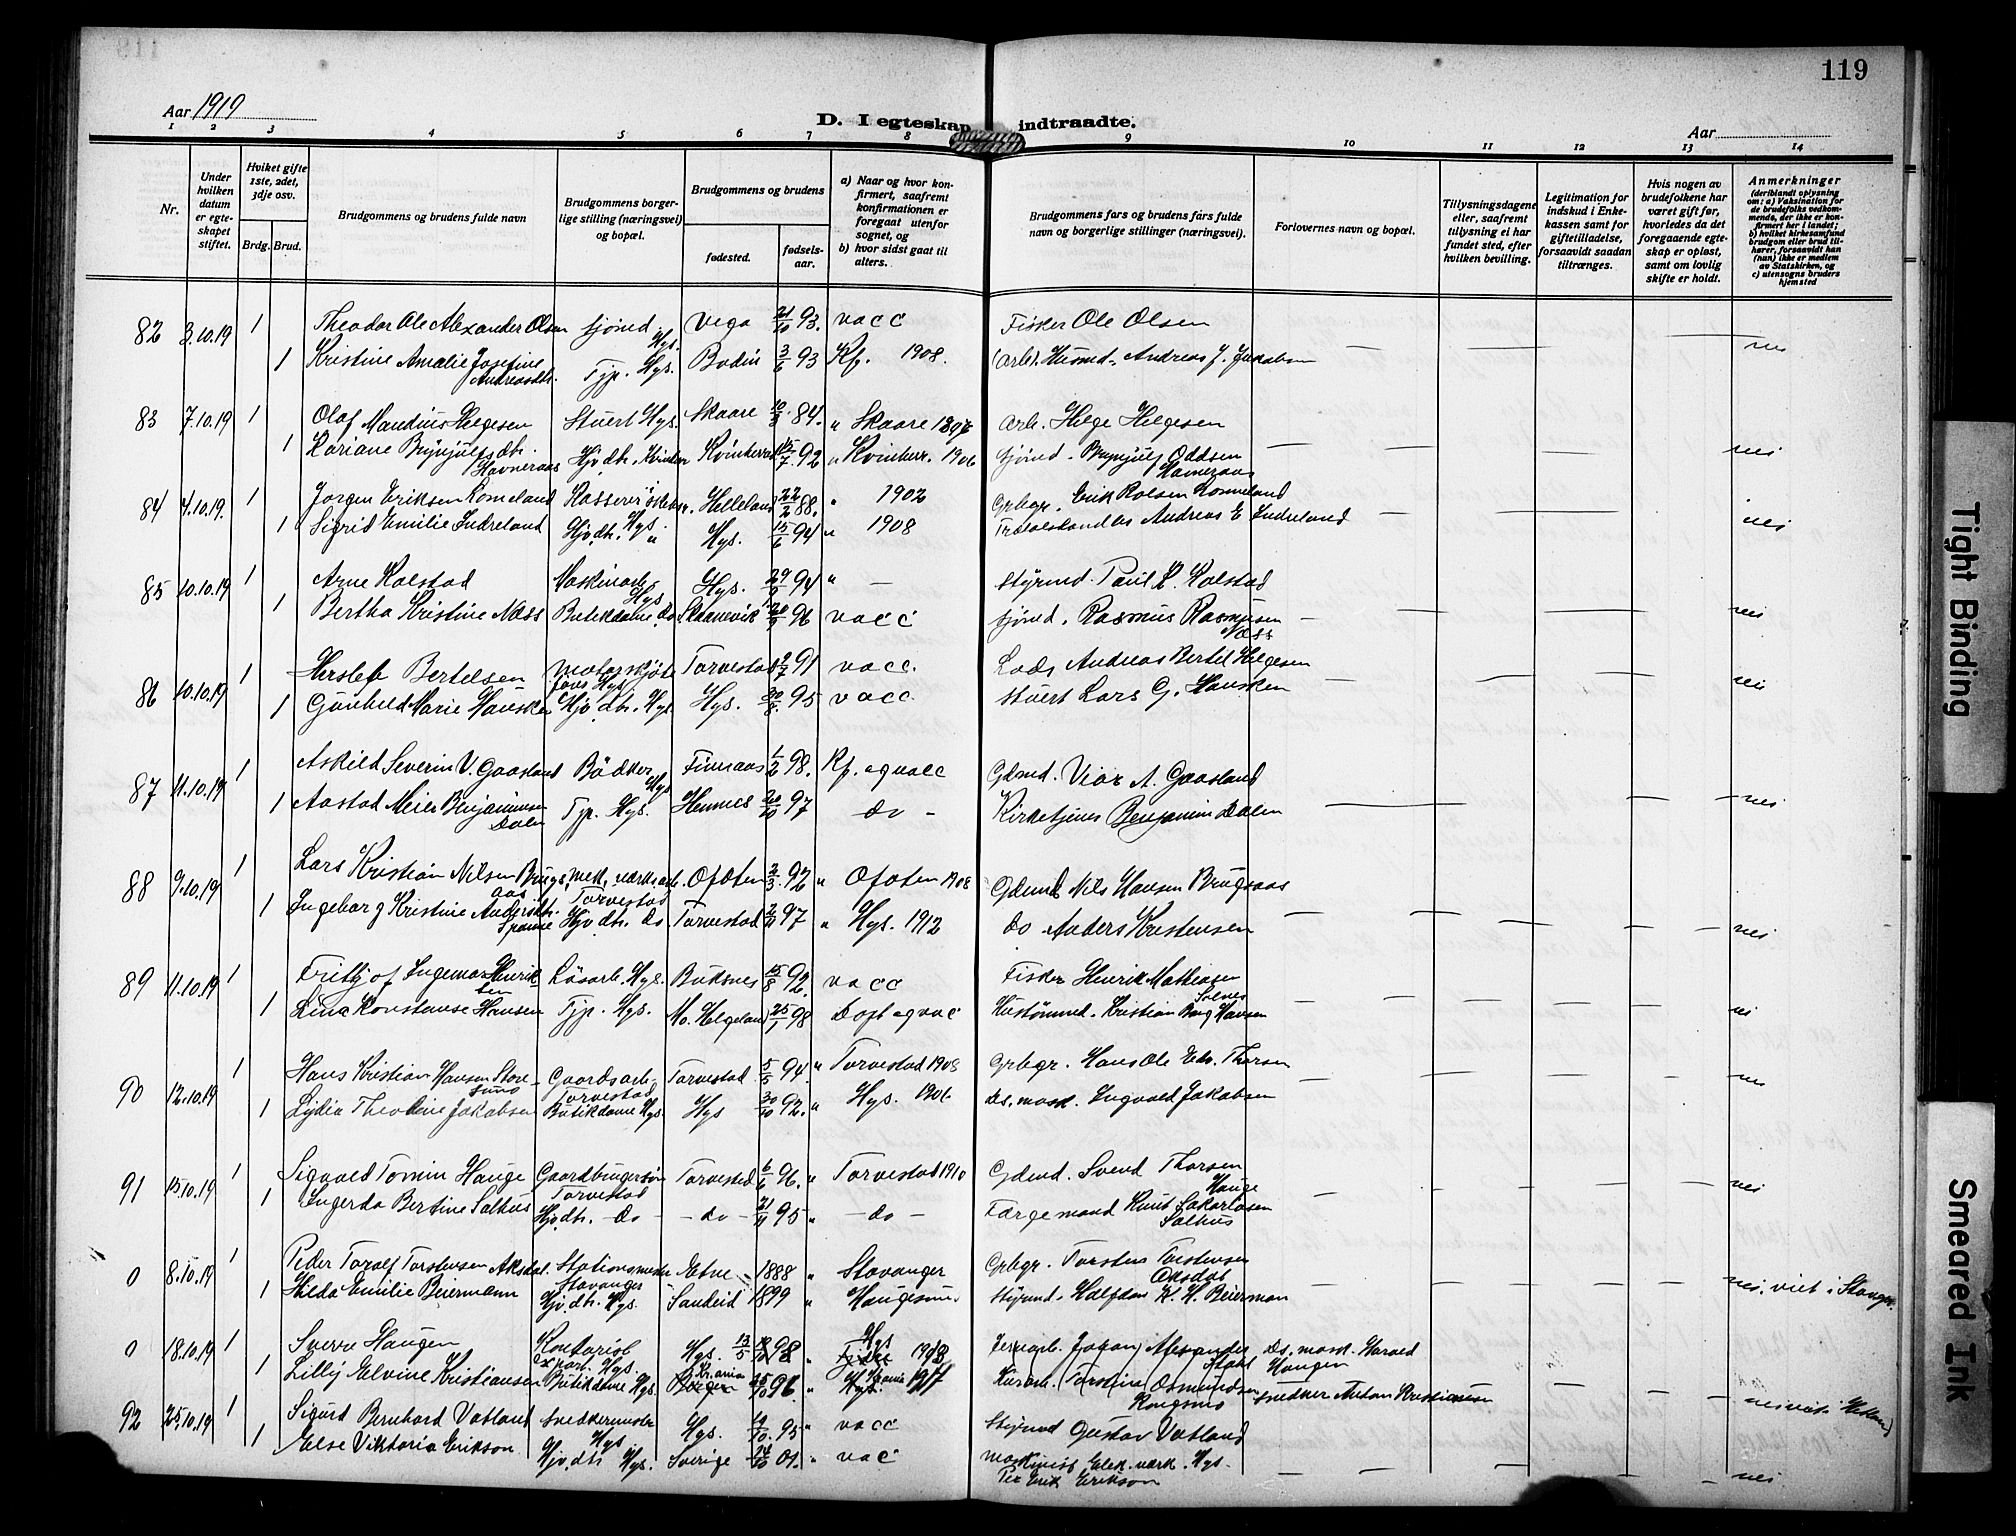 119
Aar 1919
D. I egteskap indtraadte.
Aar
1 2 3 4 5 6 7 8 9 10 11 12 13 14
Nr.
Under hvilken datum er egteskapet stiftet.
Hvilket gifte 1ste, 2det, 3dje osv.
Brdg. Brud.
Brudgommens og brudens fulde navn
Brudgommens borgerlige stilling (næringsvei) og bopæl.
Brudgommens og brudens
fødested.
fødselsaar.
a) Naar og hvor konfirmert, saafremt konfirmationen er foregaat utenfor sognet, og b) hvor sidst gaat til alters.
Brudgommens fars og brudens fars fulde navn og borgerlige stillinger (næringsvei).
Forlovernes navn og bopæl.
Tillysningsdagene eller, saafremt tillysning ei har fundet sted, efter hvilken bevilling.
Legitimation for indskud i Enkekassen samt for giftetilladelse, forsaavidt saadan tiltrænges.
Hvis nogen av brudefolkene har været gift før, hvorledes da det foregaaende egteskap er opløst, samt om lovlig skifte er holdt.
Anmerkninger (deriblandt oplysning om: a) Vaksination for de brudefolks vedkommende, der ikke er konfirmert her i landet; b) hvilket kirkesamfund brudgom eller brud tilhører, forsaavidt han (hun) ikke er medlem av Statskirken, og c) utensogns bruders hjemsted
82 3.10.19 1 Theodor Ole Alexander Olsen sjömd. Hgs. Vega 21/10 93. vacc Fisker Ole Olsen
1 Kristine Amalie Josefine Andreasdtr. Tjp. Hgs. Bodin 3/6 93 Kf. 1908. Arb. Husmd. Andreas J. Jakobsen — — — — nei
83 7.10.19 1 Olaf Mandius Helgesen Stuert Hgs. Skaare 10/3 84. " Skaare 1897 Arb. Helge Helgesen
1 Kariane Brynjulfsdtr. Havneraas Hjv.dtr. Kvinherr. Kvinherred 15/7 92 " Kvinherr. 1906 sjömd. Brynjulf Oddsen Havneraas — — — — nei
84 4.10.19. 1 Jorgen Eriksen Lomeland Helleland 22/2 88. " 1902 Grbgr. Erik Rolsen Lomeland
1 Sigrid Emilie Indreland Hjv.dtr. " Hgs. 15/6 94 " 1908 Andreas E Indreland — — — nei
85 10.10.19 1 Arne Kolstad Maskinarb. Hgs Hgs. 29/6 94 " — Styrmd. Paul K. Kolstad
1 Bertha Kristine Næss Butikdame do Skaanevik 20/9 96 vacc sjömd. Rasmus Rasmussen Næss — — — nei
86 10.10.19 1 Herslef Bertelsen Motorskjötefører Hgs. Torvestad 91 vacc. Lods Andreas Bertel Helgesen
1 Gunhild Marie Hausken Hjv.dtr. Hgs Hgs. 30/8. 95 vacc. stuert Lars G. Hausken — — — — nei
87 11.10.19 1 Askild Severin V. Gaasland Bödker Hgs Finnaas 1/2 98. Kf. og vacc Gdmd. Vier A. Gaasland
1 Aastad Meier Benjaminsen Dalen Tjp. Hgs. Hennes 20/10 97 do — Kirketjener Benjamin Dalen — — — nei
88 9.10.19 1 Lars Kristian Nilsen Brugsaas mek. værksarb. Torvestad Ofoten 2/3. 92 " Ofoten 1908 Gdmd Nils Hansen Brugsaas
1 Ingeborg Kristine Andersdtr. Spanne Hjv.dtr. do. Torvestad 97 " Hgs. 1912 do Anders Kristensen — — — — — nei
89 11.10.19 1 Fritbjof Ingemar Henriksen Lösarb. Hgs. Buksnes 15/8 92. vacc Fisker Henrik Mathiasen Solnes
1 Lina Konstanse Hansen Tjp. Hgs. Mo. Helgeland 25/1 98 Døpt og vac Hustömmd. Kristian Hansen — — — — — nei
90 12.10.19 1 Hans Kristian Hansen Storesund Gaardsarb. Torvestad Torvestad 5/5 94. " Torvestad 1908 Grbgr. Hans Ole Edv. Thorsen
1 Lydia Theoline Jakobsen Butikdame Hgs. Hgs 30/10 92. " Hgs. 1906 Ds. mask. Ingvald Jakobsen — — — — nei
91 15.10.19 1 Sigvald Tomin Hauge Gaardbrugersön Torvestad Torvested 6/6 96. " Torvestad 1910 Gdmd. Svend Thorsen Hauge
1 Ingerda Bertine Salhus Hjv.dtr. — do — — do — 21/11 95 " — do — Færgemand Knut Sakariasen Salhus — — — — — nei
0 8.10.19 1 Peder Torolf Torstensen Aksdal. Stationsmester Stavanger Etne 1888 " Stavanger Grbgr. Torsten Torstensen Oksdal
1 Hilda Emilie Beiermann Hjv.dtr. Hgs. Sandeid 1899 " Haugesund Styrmd. Halfdan K. H. Beierman — — — — — nei. viet i Stavgr.
0 18.10.19 1 Sverre Haugen Kontorist Hgs Hgs. 13/5 98 " Hgs 1913 Jernarb. Johan Alexander Stahl Ds. mask. Harald Haugen
1 Lilly Elvine Kristiansen Butikdame Hgs. Kr.ania 96 " Kr.ania 1917 Torstein Osmundsen Kongsmo snedker Anton Kristiansen — — — — nei
92 25.10.19 1 Sigurd Bernhard Vatland Snedkermester Hgs Hgs. 19/10. 95 " vacc Styrmd Gustav Vatland
1 Else Viktoria Erikson Hjv.dtr. Hgs. Sverige 24/10 01. " vac Maskinist Elek. værk. Hgs. Per Erik Erikson — — — — — nei
Tight Binding
Smeared Ink